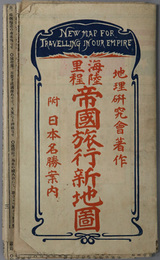 NEW MAP FOR
TRAVELLING IN OUR EMPIRE
地理研究會著作
海陸里程
帝國旅行新地圖
附日本名勝案内